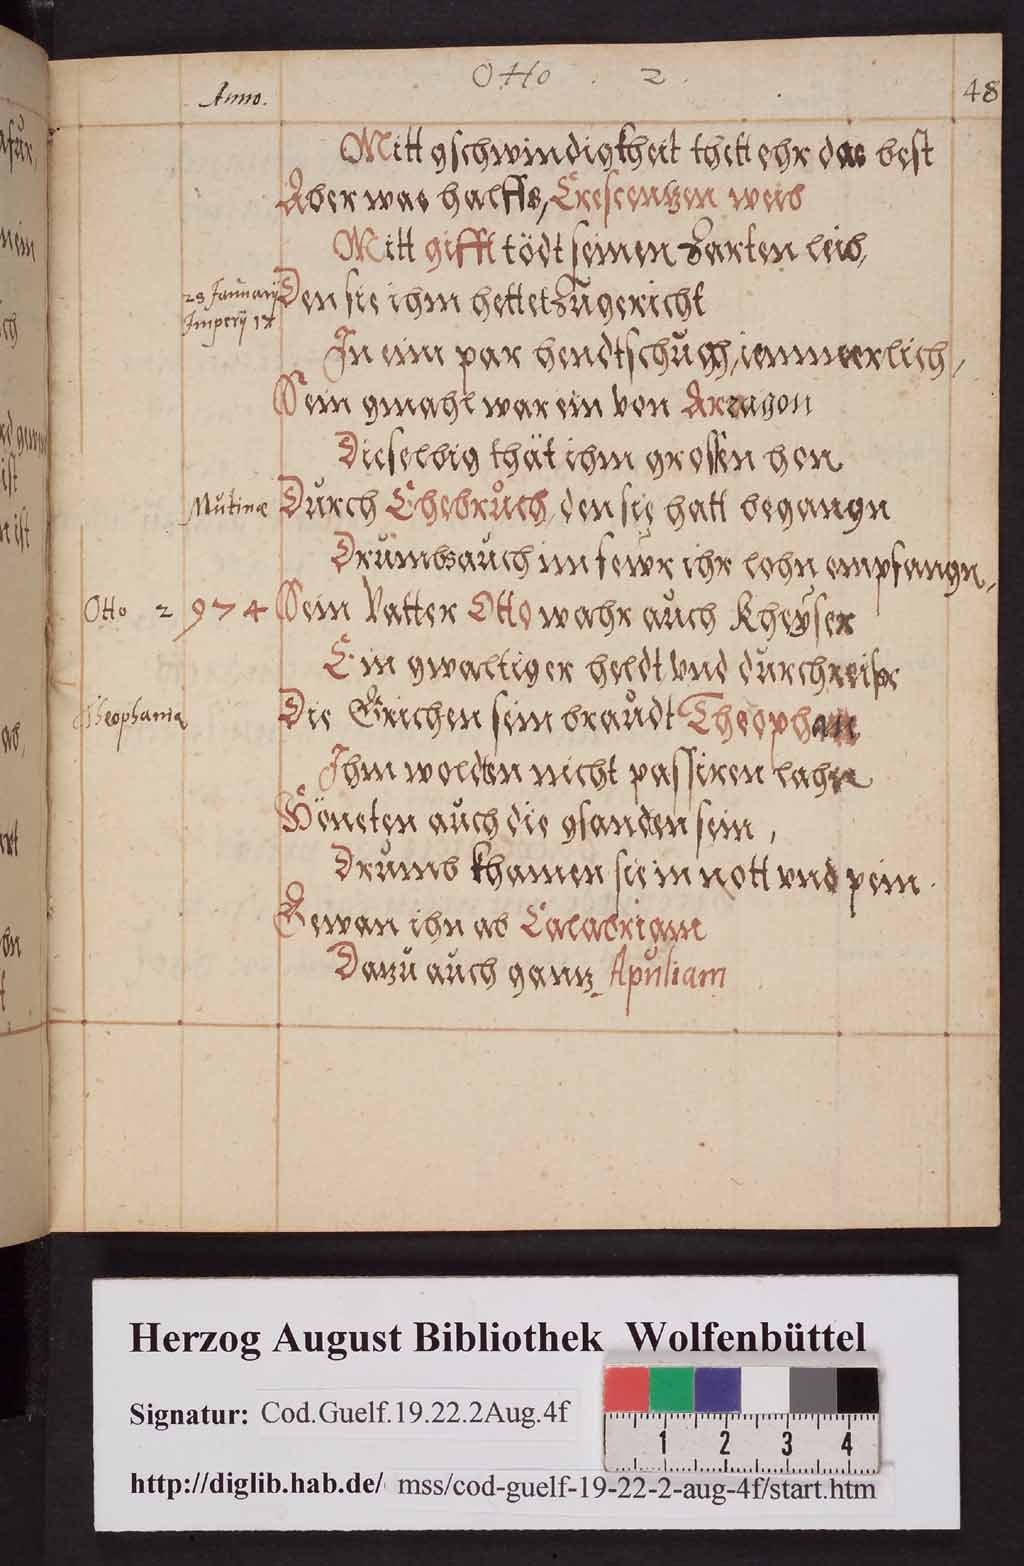 Otto . 2 .
Anno.
48
Mitt gschwindigkheit thett ehr das best
Aber was halffs, Crescentzen weib
Mitt gifft tödt seinen zarten leib,
23 Januarij
Imperij 18
Den sie ihm hettet zugericht
In eim par hendtschuch, iemmerlich,
Sein gmahl war ein von Arragon
Dieselbig thät ihm grossen hon
Mutinæ
Durch Ehebruch, den sie hatt begangn
Drumb auch im fewr ihr lohn empfangn,
Otto 2 974
Sein Vatter Otto wahr auch Kheyser
Ein gwaltiger heldt vnd durchreiser
Theophania
Die Grichen sein braudt Theophan
Ihm wolden nicht passiren lahn
Höneten auch die gsanden sein,
Drumb khamen sie in nott vnd pein.
Gewan ihn ab Calabriam
Dazu auch gantz Apuliam
Herzog August Bibliothek Wolfenbüttel
Signatur: Cod.Guelf.19.22.2Aug.4f
1 2 3 4
http://diglib.hab.de/ mss/cod-guelf-19-22-2-aug-4f/start.htm